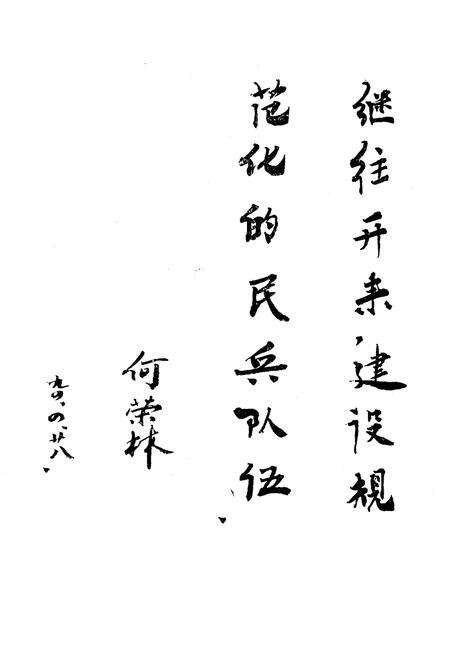 继往开来,建设规
范化的民兵队伍
何荣林
九〇、四、廿八